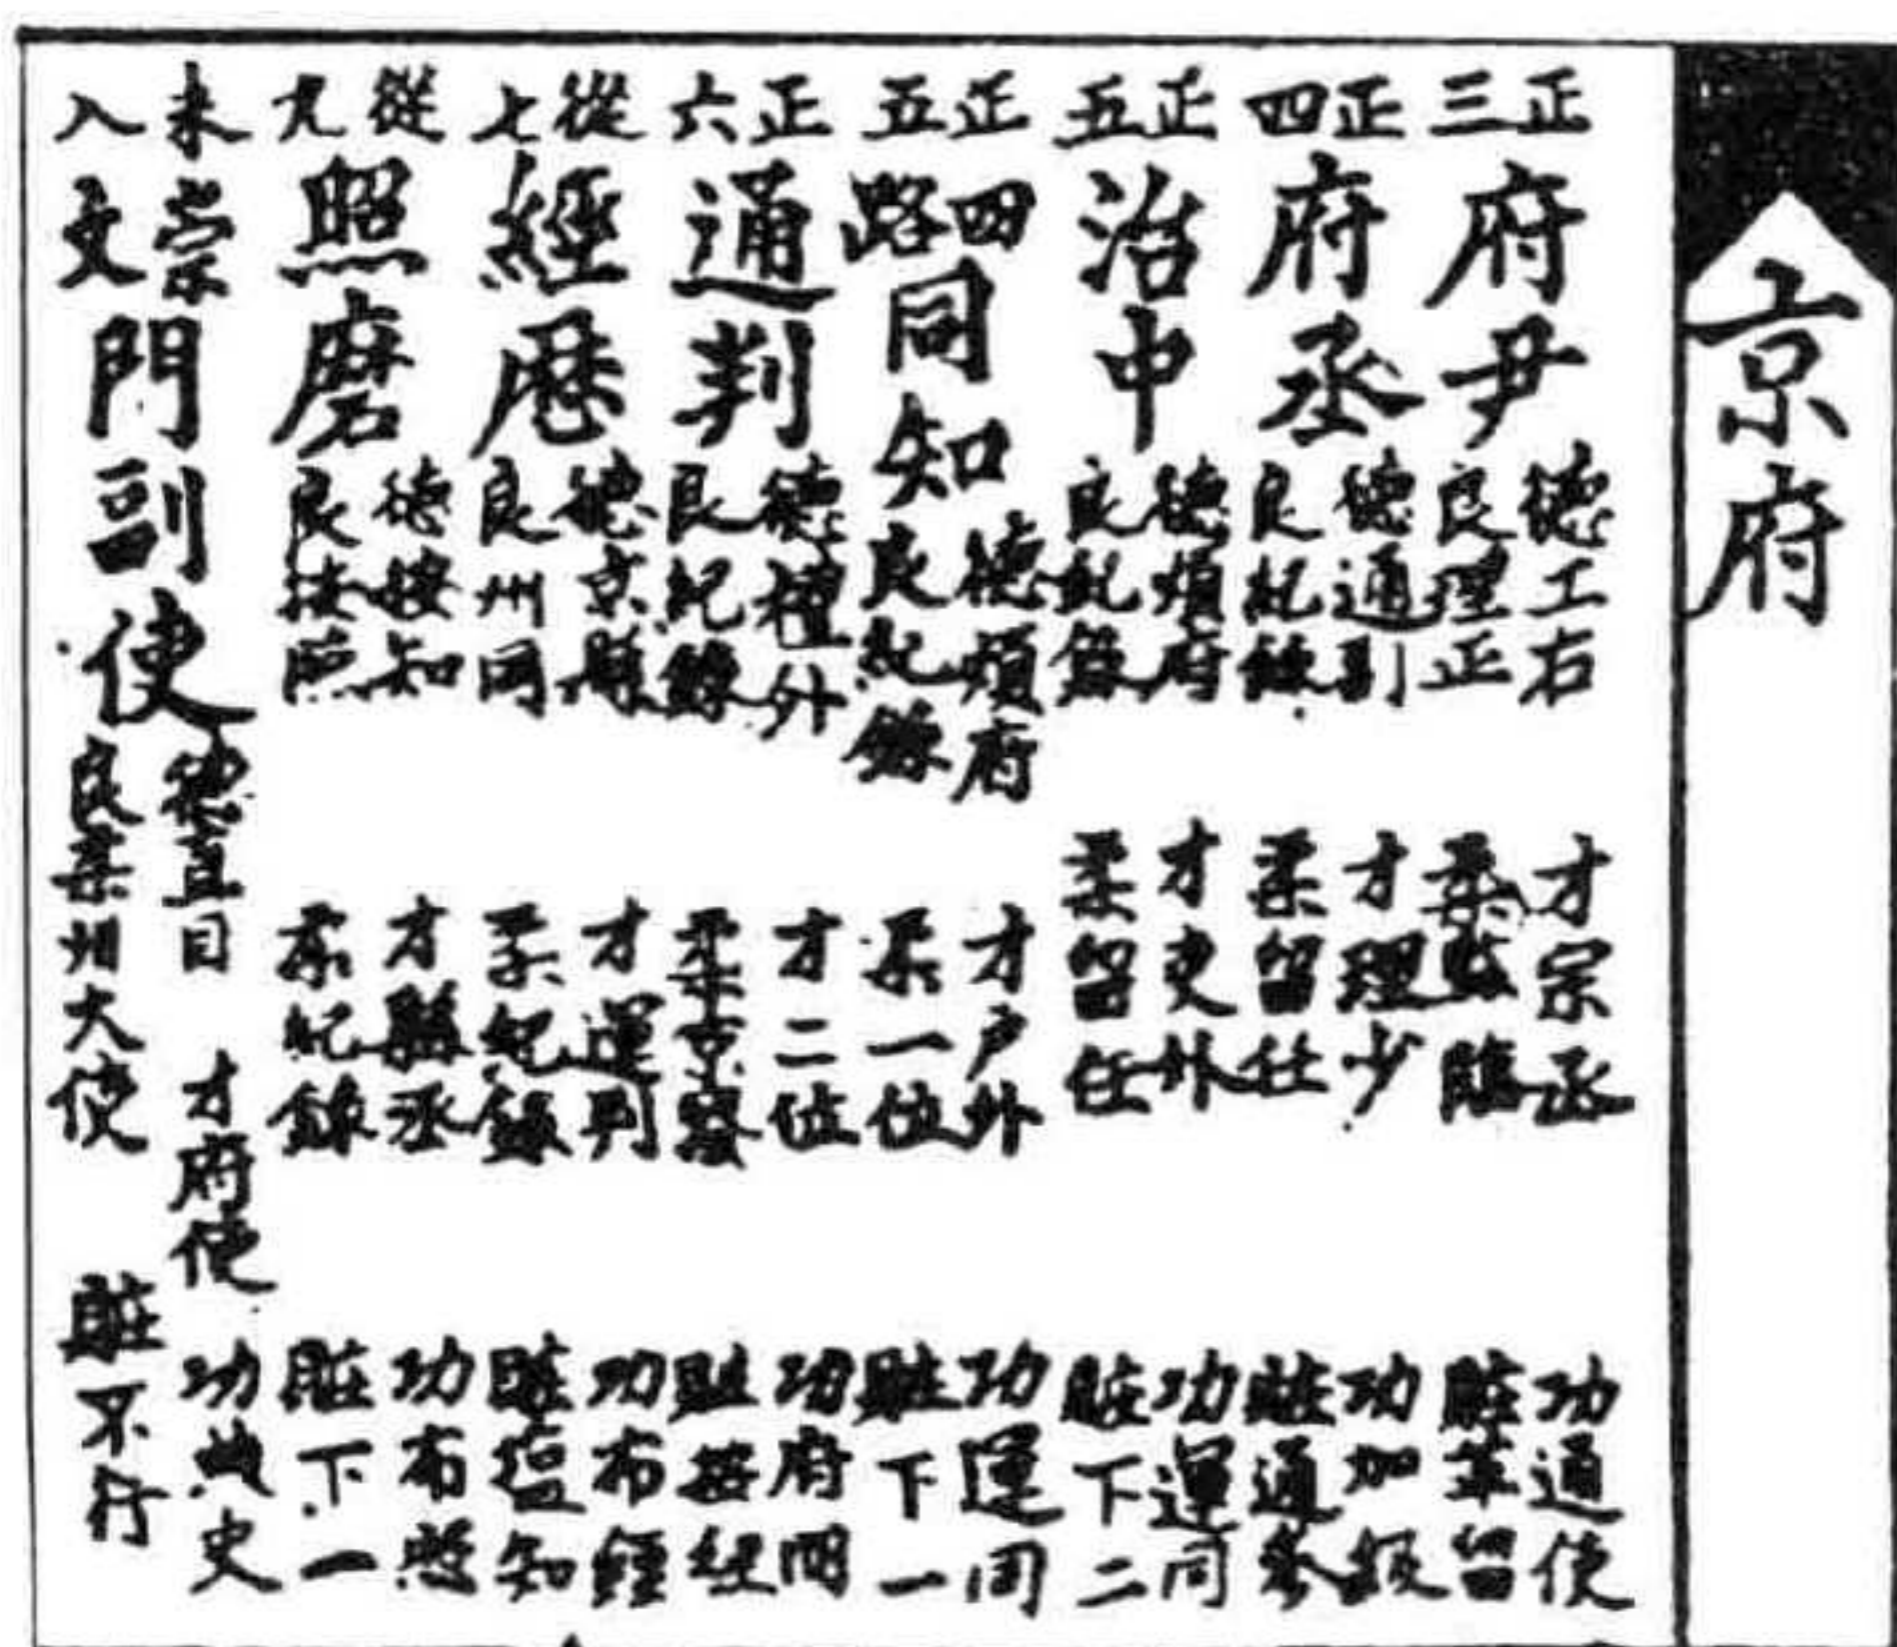 京府
正三府尹 德工右 良理正 才宗丞 柔監臨 功通使 賍革留
正四府丞 德通副 良紀錄 才理少 柔留任 功加級 賍通參
正五治中 德煩府 良紀錄 才吏外 柔留任 功運同 賍下二
正五四路同知 德煩府 良紀錄 才戶外 柔一位 功運同 賍下一
正六通判 德禮外 良紀錄 才二位 柔京察 功府同 賍按經
從七經歷 德京縣 良州同 才運判 柔紀錄 功布經 賍鹽知
從九照磨 德按知 良按照 才縣丞 柔紀錄 功布照 賍下一
未入崇文門副使 德直目 良柔州大使 才府使 功典史 賍不行